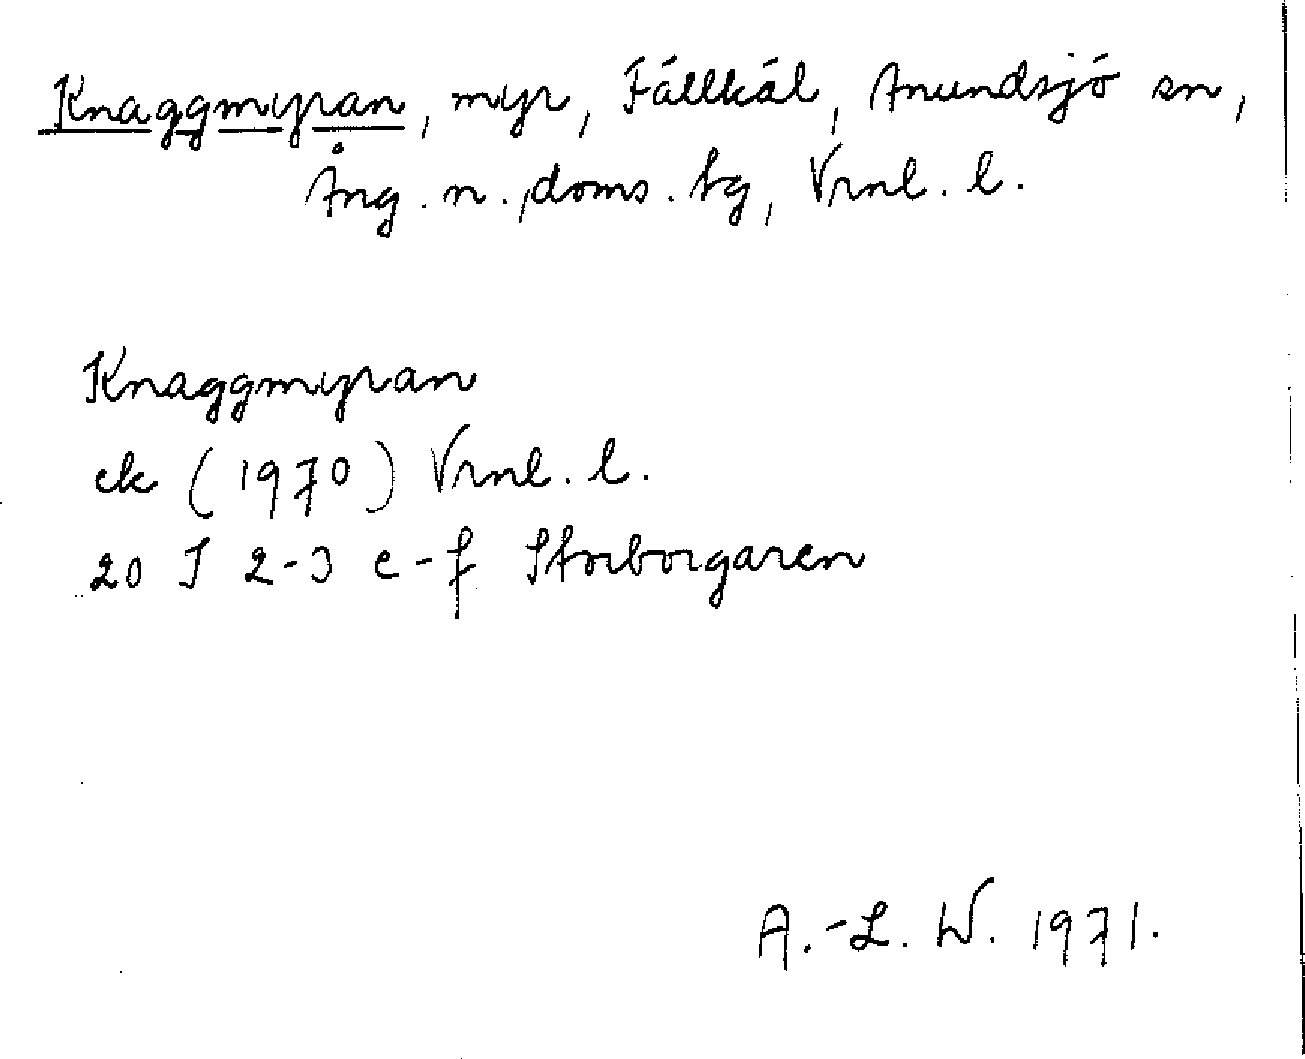 Knaggmyran, myr, Fällkäl, Anundsjö sn,
Ång. n. doms. tg, Vrnl. l.
Knaggmyran
ek (1970) Vrnl. l.
20 J 2-3 e-f Storborgaren
A.-L. W. 1971.